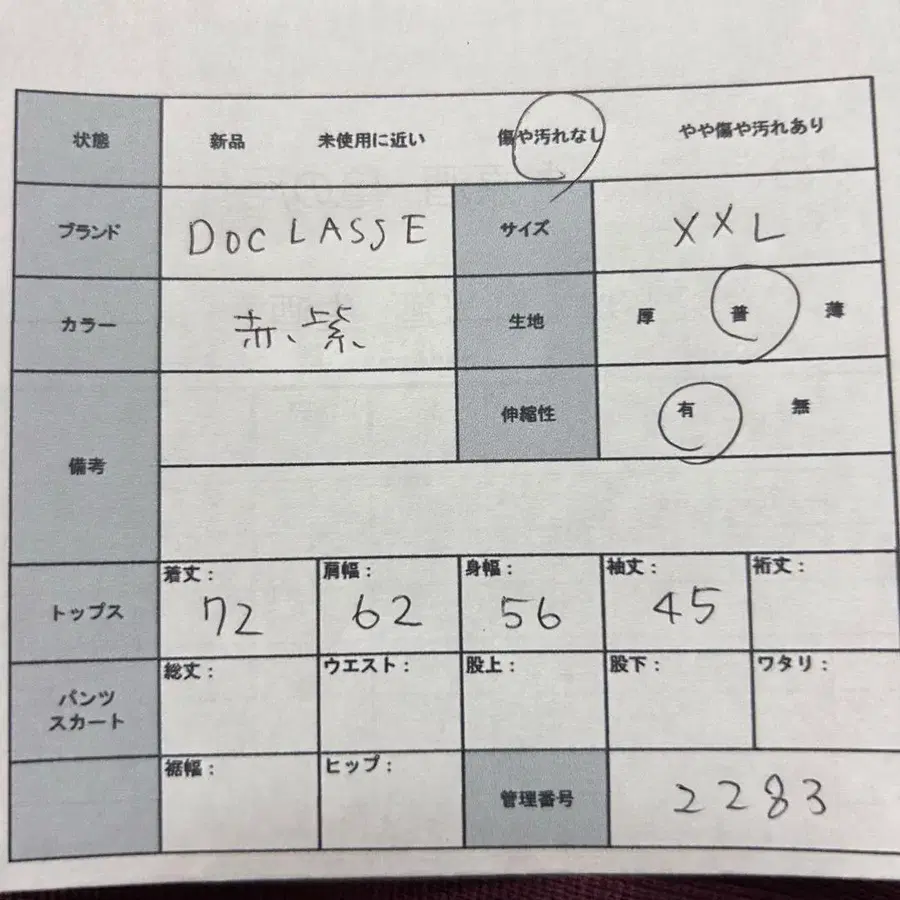 状態 新品 未使用に近い 傷や汚れなし やや傷や汚れあり
ブランド DOCLASSE サイズ XXL
カラー 赤、紫、 生地 厚 普 薄
備考 伸縮性 有 無
トップス 着丈: 72 肩幅: 62 身幅: 56 袖丈: 45 裄丈:
パンツ 総丈: ウエスト: 股上: 股下: ワタリ:
スカート
裾幅: ヒップ: 管理番号 2283